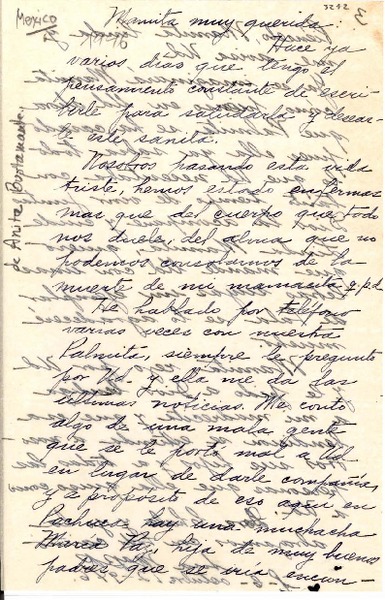 3242
3
Mexico
de Anita Bustamante
Mamita muy querida:
Hace ya
varios días que tengo el
pensamiento constante de escri-
birle para saludarla y desear-
le este sanita.
Nosotros pasando esta vida
triste, hemos estado enfermas
mas que del cuerpo que todo
nos duele, del alma que no
podemos consolarnos de la
muerte de mi mamasita q.p.d.
He hablado por teléfono
varias veces con nuestra
Palmita, siempre le pregunto
por Ud. y ella me da las
últimas noticias. Me contó
algo de una mala gente
que se le portó mal a Ud.
en lugar de darle compañía,
y a propósito de eso aquí en
Pachuca hay una muchacha
María Paz, hija de muy buenos
padres que se iría encan-